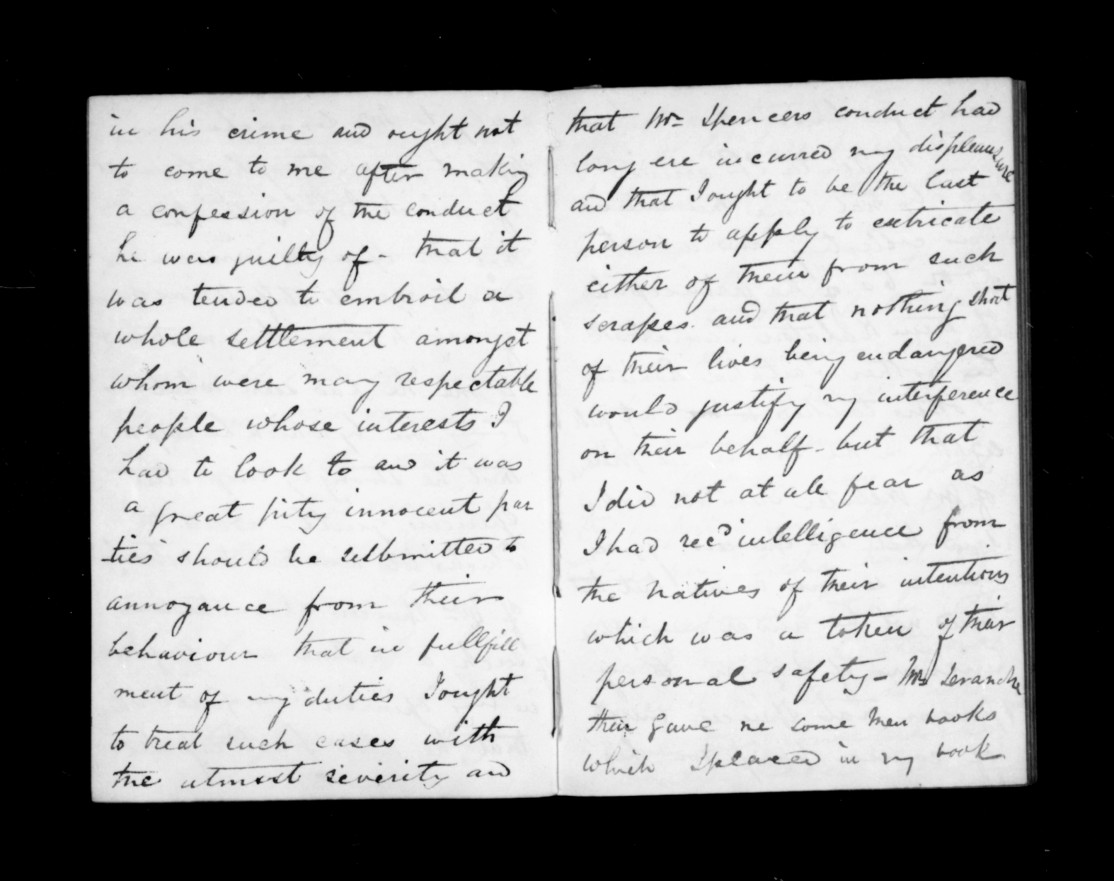 in his crime and ought not
to come to me after making
a confession of the conduct
he was guilty of - that it
was tended to embroil a
whole settlement amongst
whom were many respectable
people whose interests I
had to look to and it was
a great pity innocent par
ties should be submitted to
annoyance from their
behaviour that in fullfill
ment of my duties I ought
to treat such cases with
the utmost severity and
that Mr Spencers conduct had
long ere incurred my displeasure
and that I ought to be the last
person to apply to extricate
either of them from such
scrapes. and that nothing short
of their lives being endangered
would justify my interference
on their behalf - but that
I did not at all fear as
I had recd intelligence from
the natives of their intentions
which was a token of their
personal safety - Mr
then gave me some books
which I placed in my book